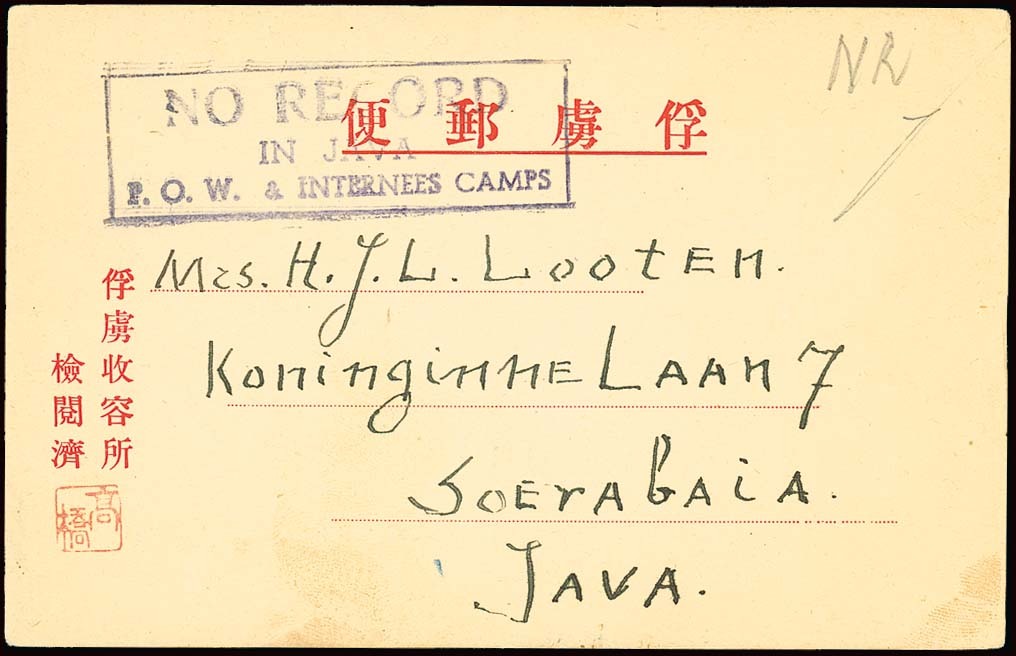 NR
NO RECORD
IN JAVA
P. O. W. & INTERNEES CAMPS
俘虜郵便
Mrs. H. J. L. Looten.
Koninginne Laan 7
Soerabaia.
Java.
俘虜收容所
檢閲濟
高橋